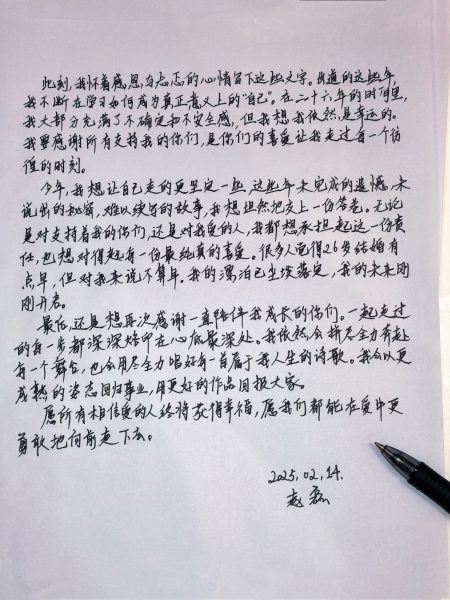 此刻,我怀着感恩与忐忑的心情留下这些文字。出道的这些年,
我不断在学习如何成为真正意义上的“自己”。在二十六年的时间里,
我大部分充满了不确定和不安全感,但我想我依然是幸运的。
我要感谢所有支持我的你们,是你们的喜爱让我走过每一个彷
徨的时刻。
今年,我想让自己走的更坚定一些,这些年未完成的遗憾,未
说出的秘密,难以续写的故事,我想坦然把交上一份答卷。无论
是对支持着我的你们,还是对我爱的人,我都想承担起这一份责
任,也想对得起每一份最纯真的喜爱。很多人觉得26岁结婚有
点早,但对我来说不算早。我的漂泊已尘埃落定,我的未来刚
刚开启。
最后,还是想再次感谢一直陪伴我成长的你们。一起走过
的每一步都深深烙印在心底最深处。我依然会拼尽全力奔赴
每一个舞台,也会用尽全力唱好每一首属于我人生的诗歌。我会以更
成熟的姿态回归事业,用更好的作品回报大家。
愿所有相信爱的人终将获得幸福,愿我们都能在爱中更
勇敢地向前走下去。
2025.02.14.
赵磊